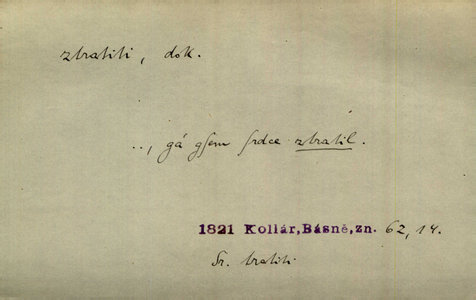 ztratiti, dok.
.., gá gsem srdce ztratil.
1821 Kollár, Básně, zn. 62, 14.
Sr. tratiti